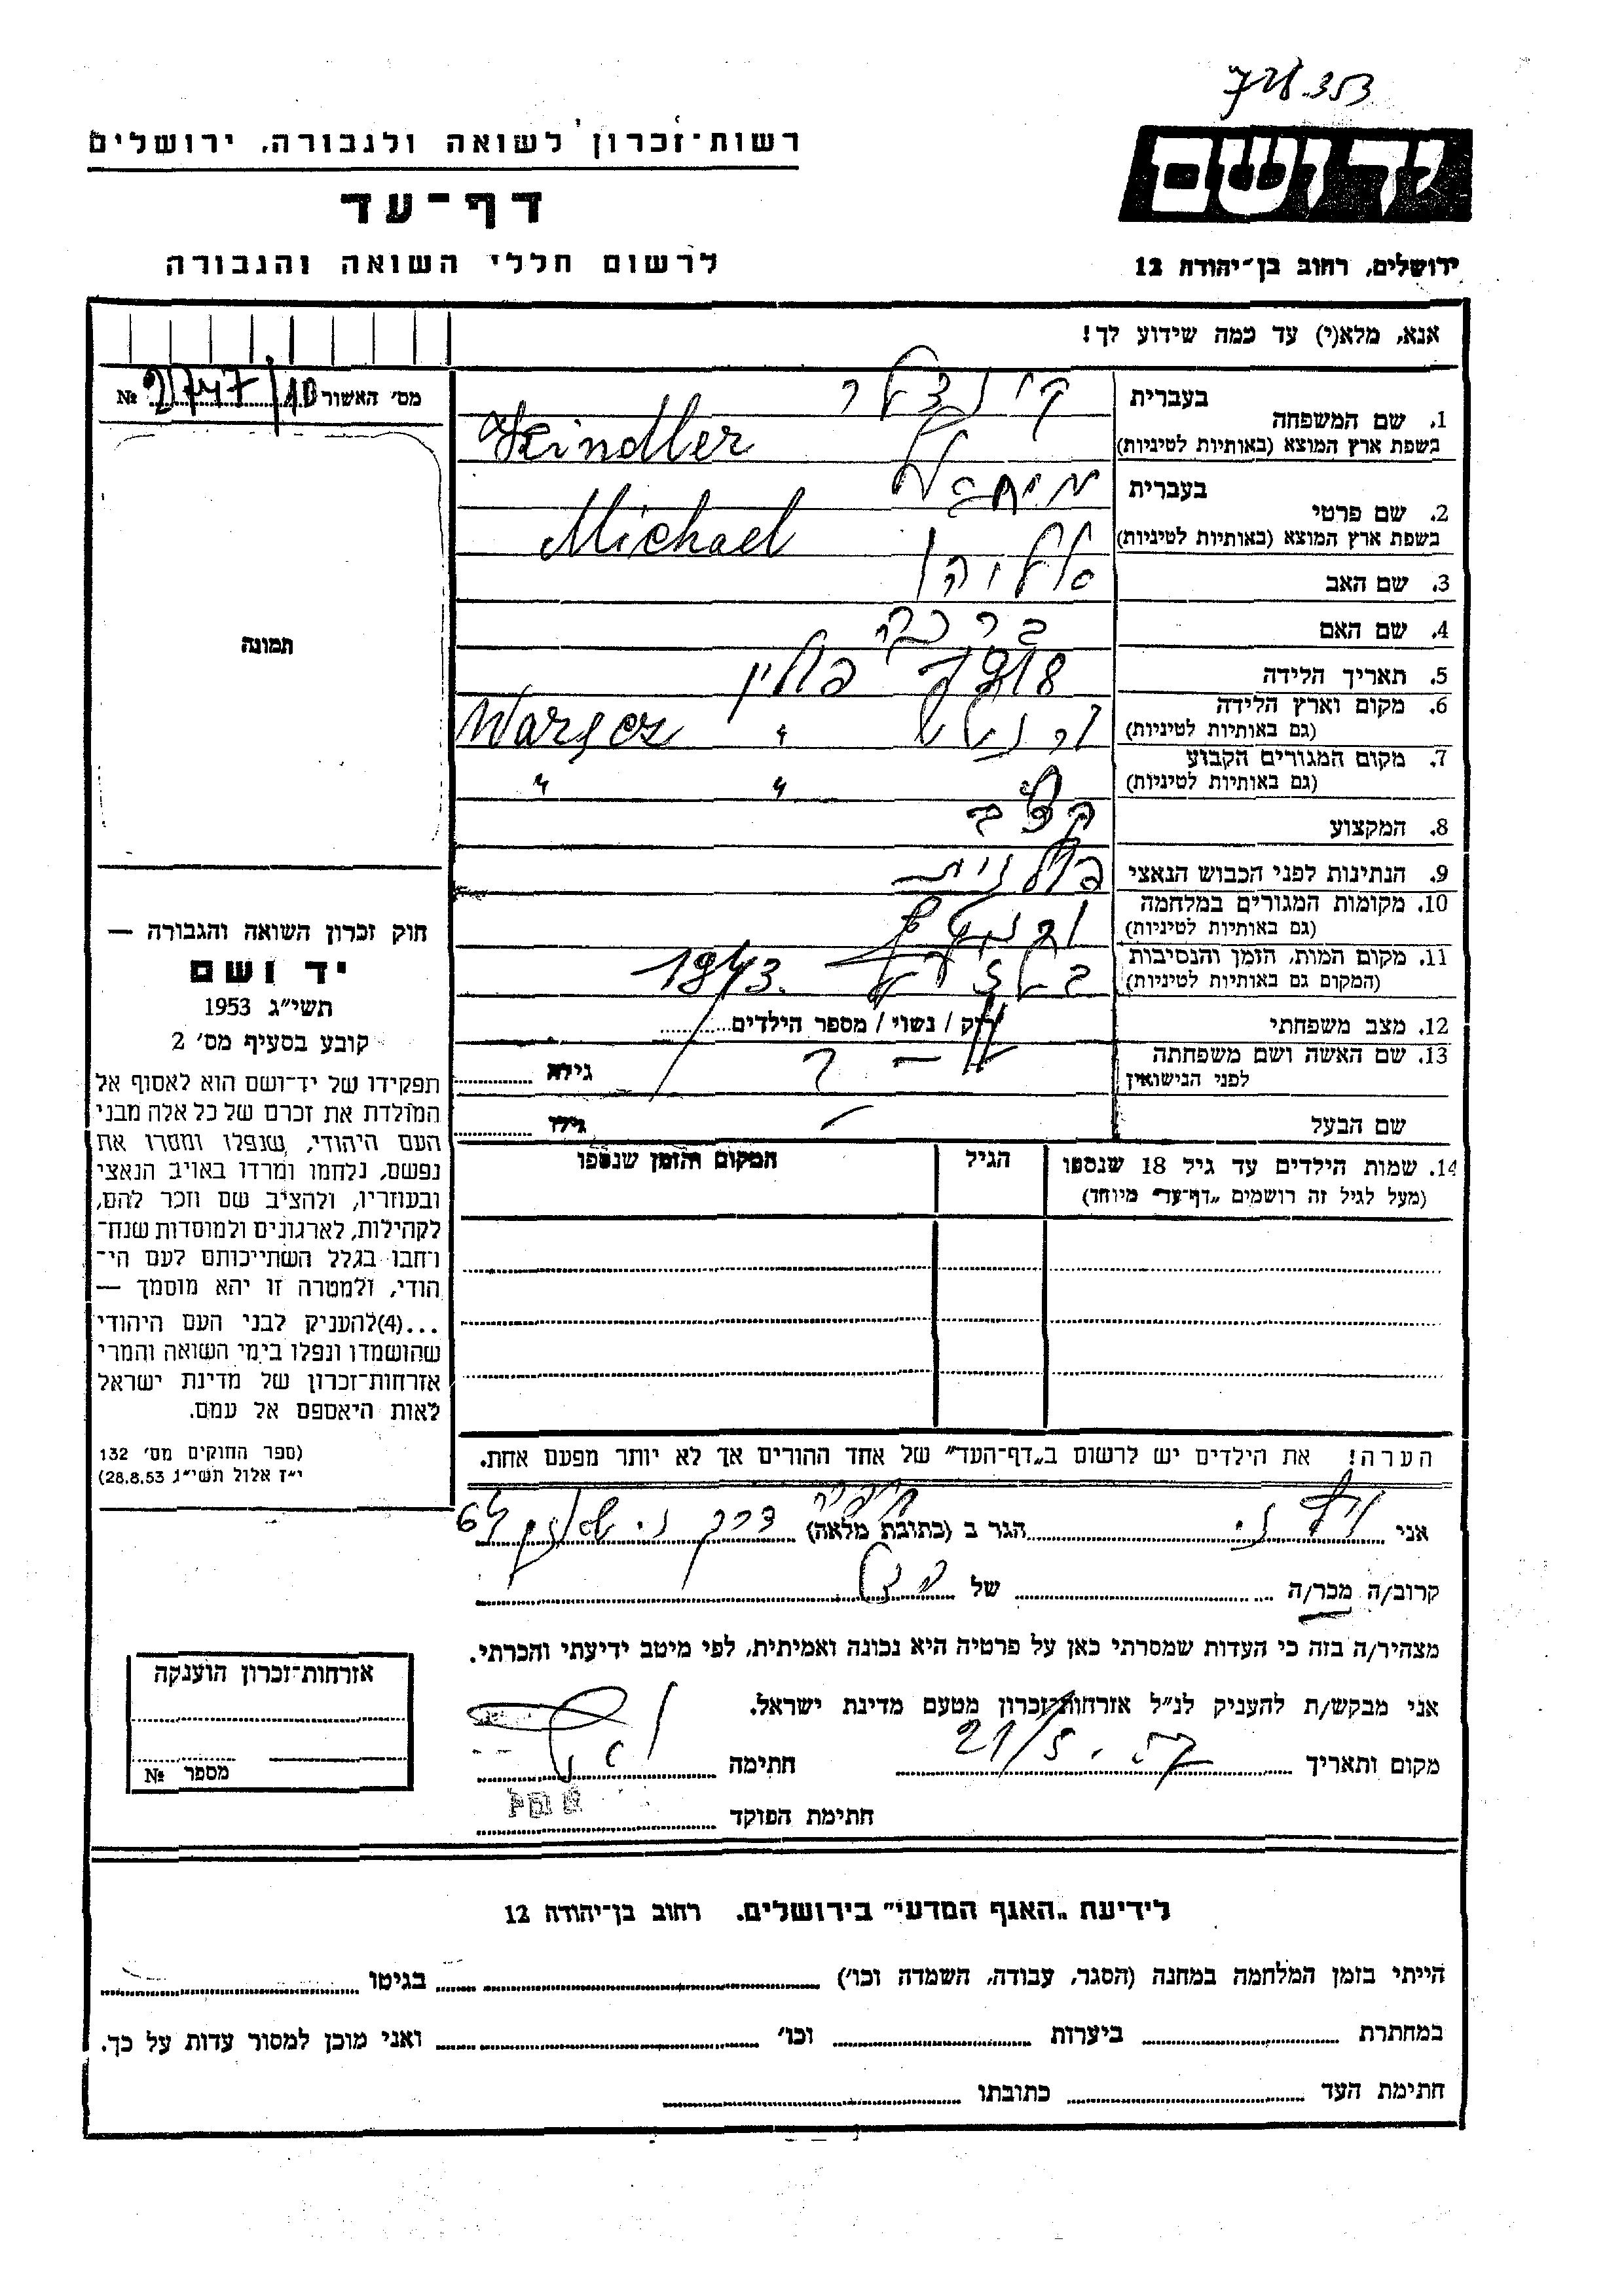 רשות־זכרון לשואה ולגבורה, ירושלים
דף־עד
לרשום חללי השואה והגבורה
ידושם
ירושלים, רחוב בן־יהודה 12
אנא, מלא(י) עד כמה שידוע לך!
מס׳ האשור 10/2747 №
בעברית
1. שם המשפחה
בשפת ארץ המוצא (באותיות לטיניות) Kindler
בעברית מיחאל
2. שם פרטי
בשפת ארץ המוצא (באותיות לטיניות) Michael
3. שם האב אליהו
4. שם האם ברכה
5. תאריך הלידה 1918 פולין
6. מקום וארץ הלידה
(גם באותיות לטיניות) "
7. מקום המגורים הקבוע
(גם באותיות לטיניות) " "
8. המקצוע קצב
9. הנתינות לפני הכבוש הנאצי פולנית
10. מקומות המגורים במלחמה
(גם באותיות לטיניות)
11. מקום המות, הזמן והנסיבות
(המקום גם באותיות לטיניות) 1943
12. מצב משפחתי רוק / נשוי / מספר הילדים
13. שם האשה ושם משפחתה
לפני הנישואין גילה
שם הבעל גילו
14. שמות הילדים עד גיל 18 שנספו הגיל המקום והזמן שנספו
(מעל לגיל זה רושמים „דף־עד״ מיוחד)
הערה! את הילדים יש לרשום ב„דף־העד״ של אחד ההורים אך לא יותר מפעם אחת.
תמונה
חוק זכרון השואה והגבורה —
יד ושם
תשי״ג 1953
קובע בסעיף מס׳ 2
תפקידו של יד־ושם הוא לאסוף אל
המולדת את זכרם של כל אלה מבני
העם היהודי, שנפלו ומסרו את
נפשם, נלחמו ומרדו באויב הנאצי
ובעוזריו, ולהציב שם וזכר להם,
לקהילות, לארגונים ולמוסדות שנח־
רבו בגלל השתייכותם לעם הי־
הודי, ולמטרה זו יהא מוסמך —
...(4)להעניק לבני העם היהודי
שהושמדו ונפלו בימי השואה והמרי
אזרחות־זכרון של מדינת ישראל
לאות היאספם אל עמם.
(ספר החוקים מס׳ 132
י״ז אלול תשי״ג 28.8.53)
אני הגר ב (כתובת מלאה) 64
קרוב/ה מכר/ה של
מצהיר/ה בזה כי העדות שמסרתי כאן על פרטיה היא נכונה ואמיתית, לפי מיטב ידיעתי והכרתי.
אני מבקש/ת להעניק לנ״ל אזרחות־זכרון מטעם מדינת ישראל.
מקום ותאריך 21/5.57 חתימה
חתימת הפוקד
אזרחות־זכרון הוענקה
מספר №
לידיעת „האגף המדעי״ בירושלים, רחוב בן־יהודה 12
הייתי בזמן המלחמה במחנה (הסגר, עבודה, השמדה וכו׳) בגיטו
במחתרת ביערות וכו׳ ואני מוכן למסור עדות על כך.
חתימת העד כתובתו